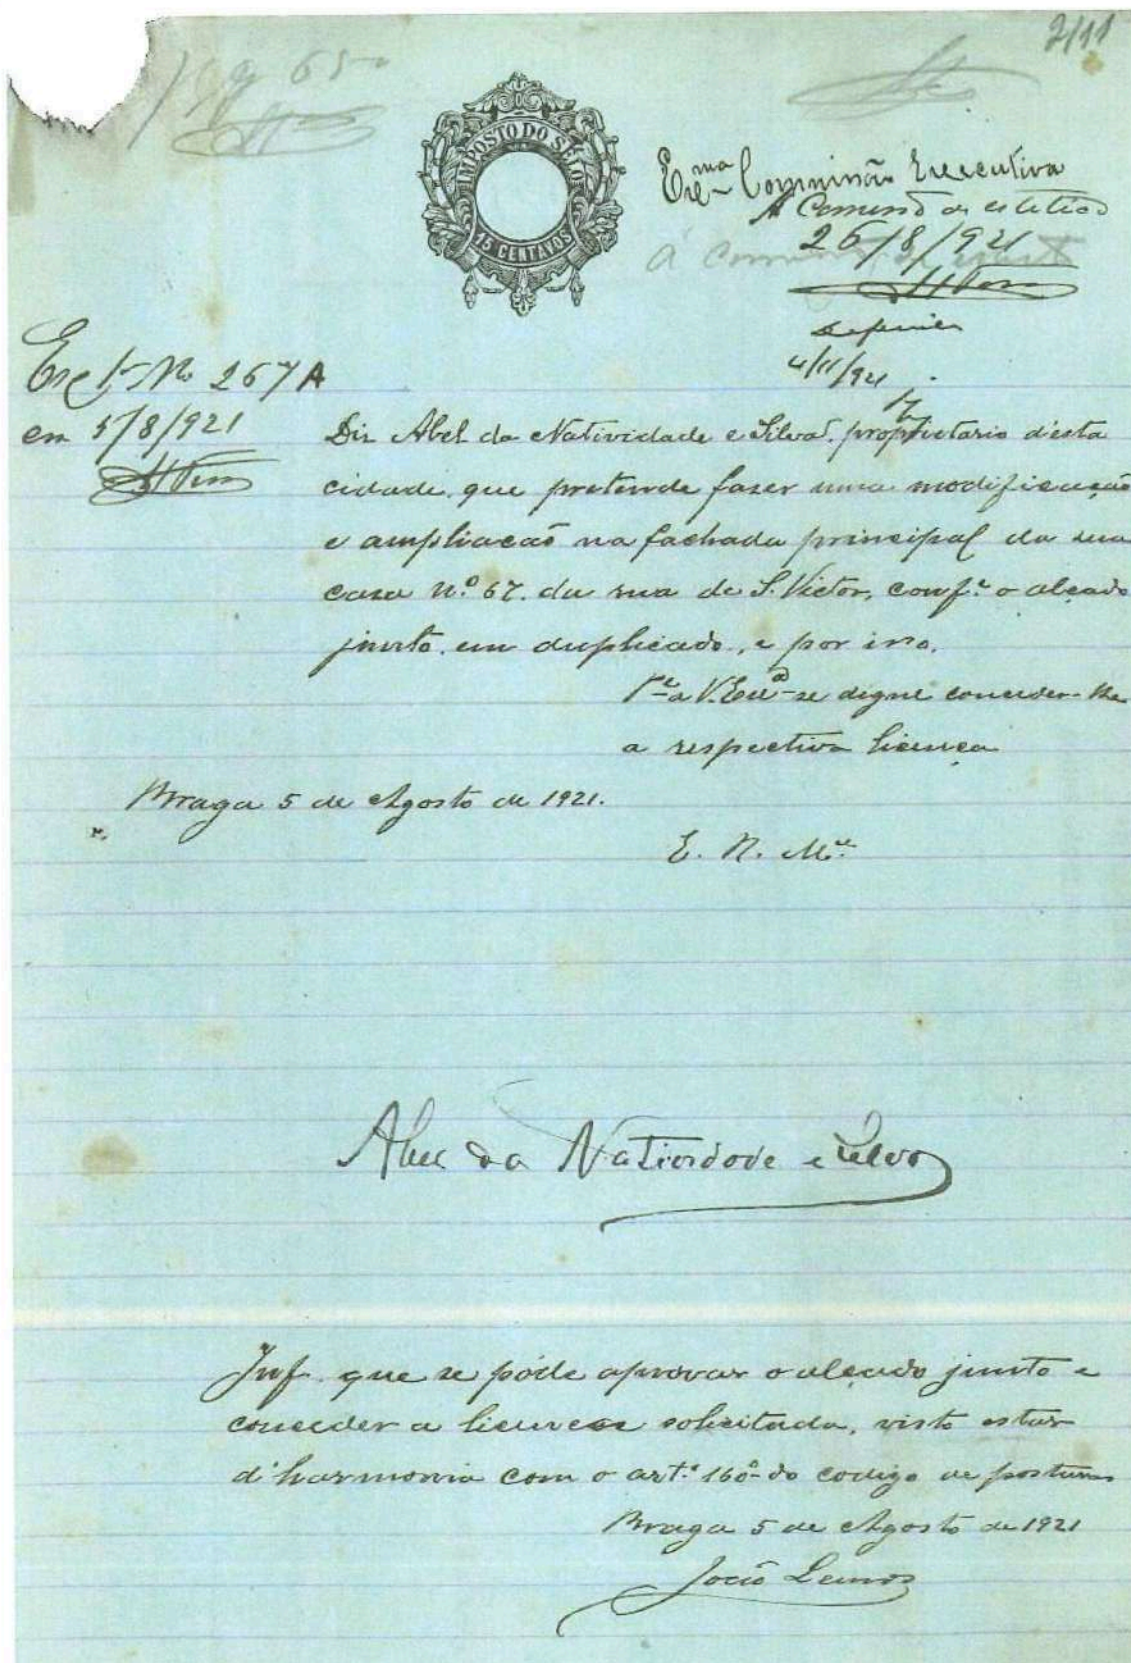 2/11
IMPOSTO DO SELO
15 CENTAVOS
Exma Commissão Executiva
Á Comissão de estetica
26/8/921
Deferido
4/11/921
Ent No 267 A
em 5/8/921
Diz Abel da Natividade e Silva, proprietario d'esta
cidade, que pretende fazer uma modificação
e ampliação na fachada principal da sua
casa n.º 67. da rua de S. Victor, conf.e o alçado
junto, em duplicado, e por isso,
P.e a V. Ex.as se digne conceder-lhe
a respectiva licença
Braga 5 de Agosto de 1921.
E. R. M.ce
Abel da Natividade e Silva
Inf. que se póde aprovar o alçado junto e
conceder a licença solicitada, visto estar
d'harmonia com o art.º 160º do codigo de posturas
Braga 5 de Agosto de 1921
João Lemos